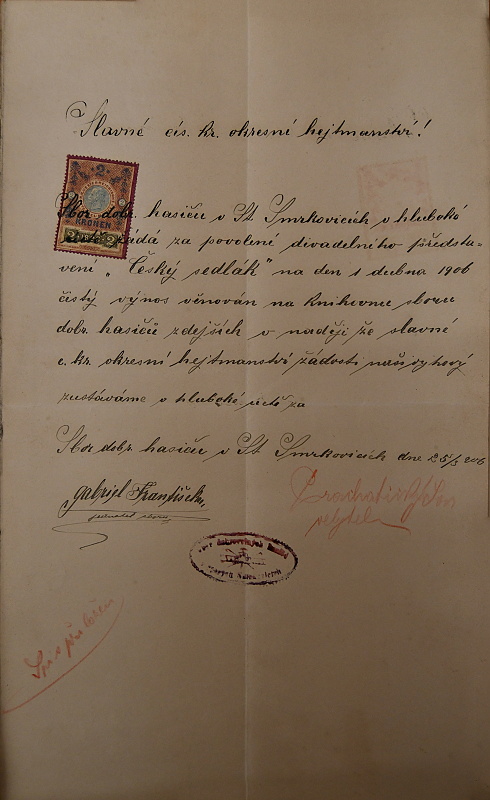 Slavné cís. kr. okresní hejtmanství!
2
KRONEN
Sbor dobr. hasičů v St Smrkovicích v hluboké
úctě žádá za povolení divadelního představení
„Český sedlák" na den 1 dubna 1906
čistý výnos věnován na knihovnu sboru
dobr. hasičů zdejších v naději že slavné
c. kr. okresní hejtmanství žádosti naší vyhový
zustáváme v hluboké úctě za
Sbor dobr. hasičů v St Smrkovicích dne 25/3 906
Gabriel František